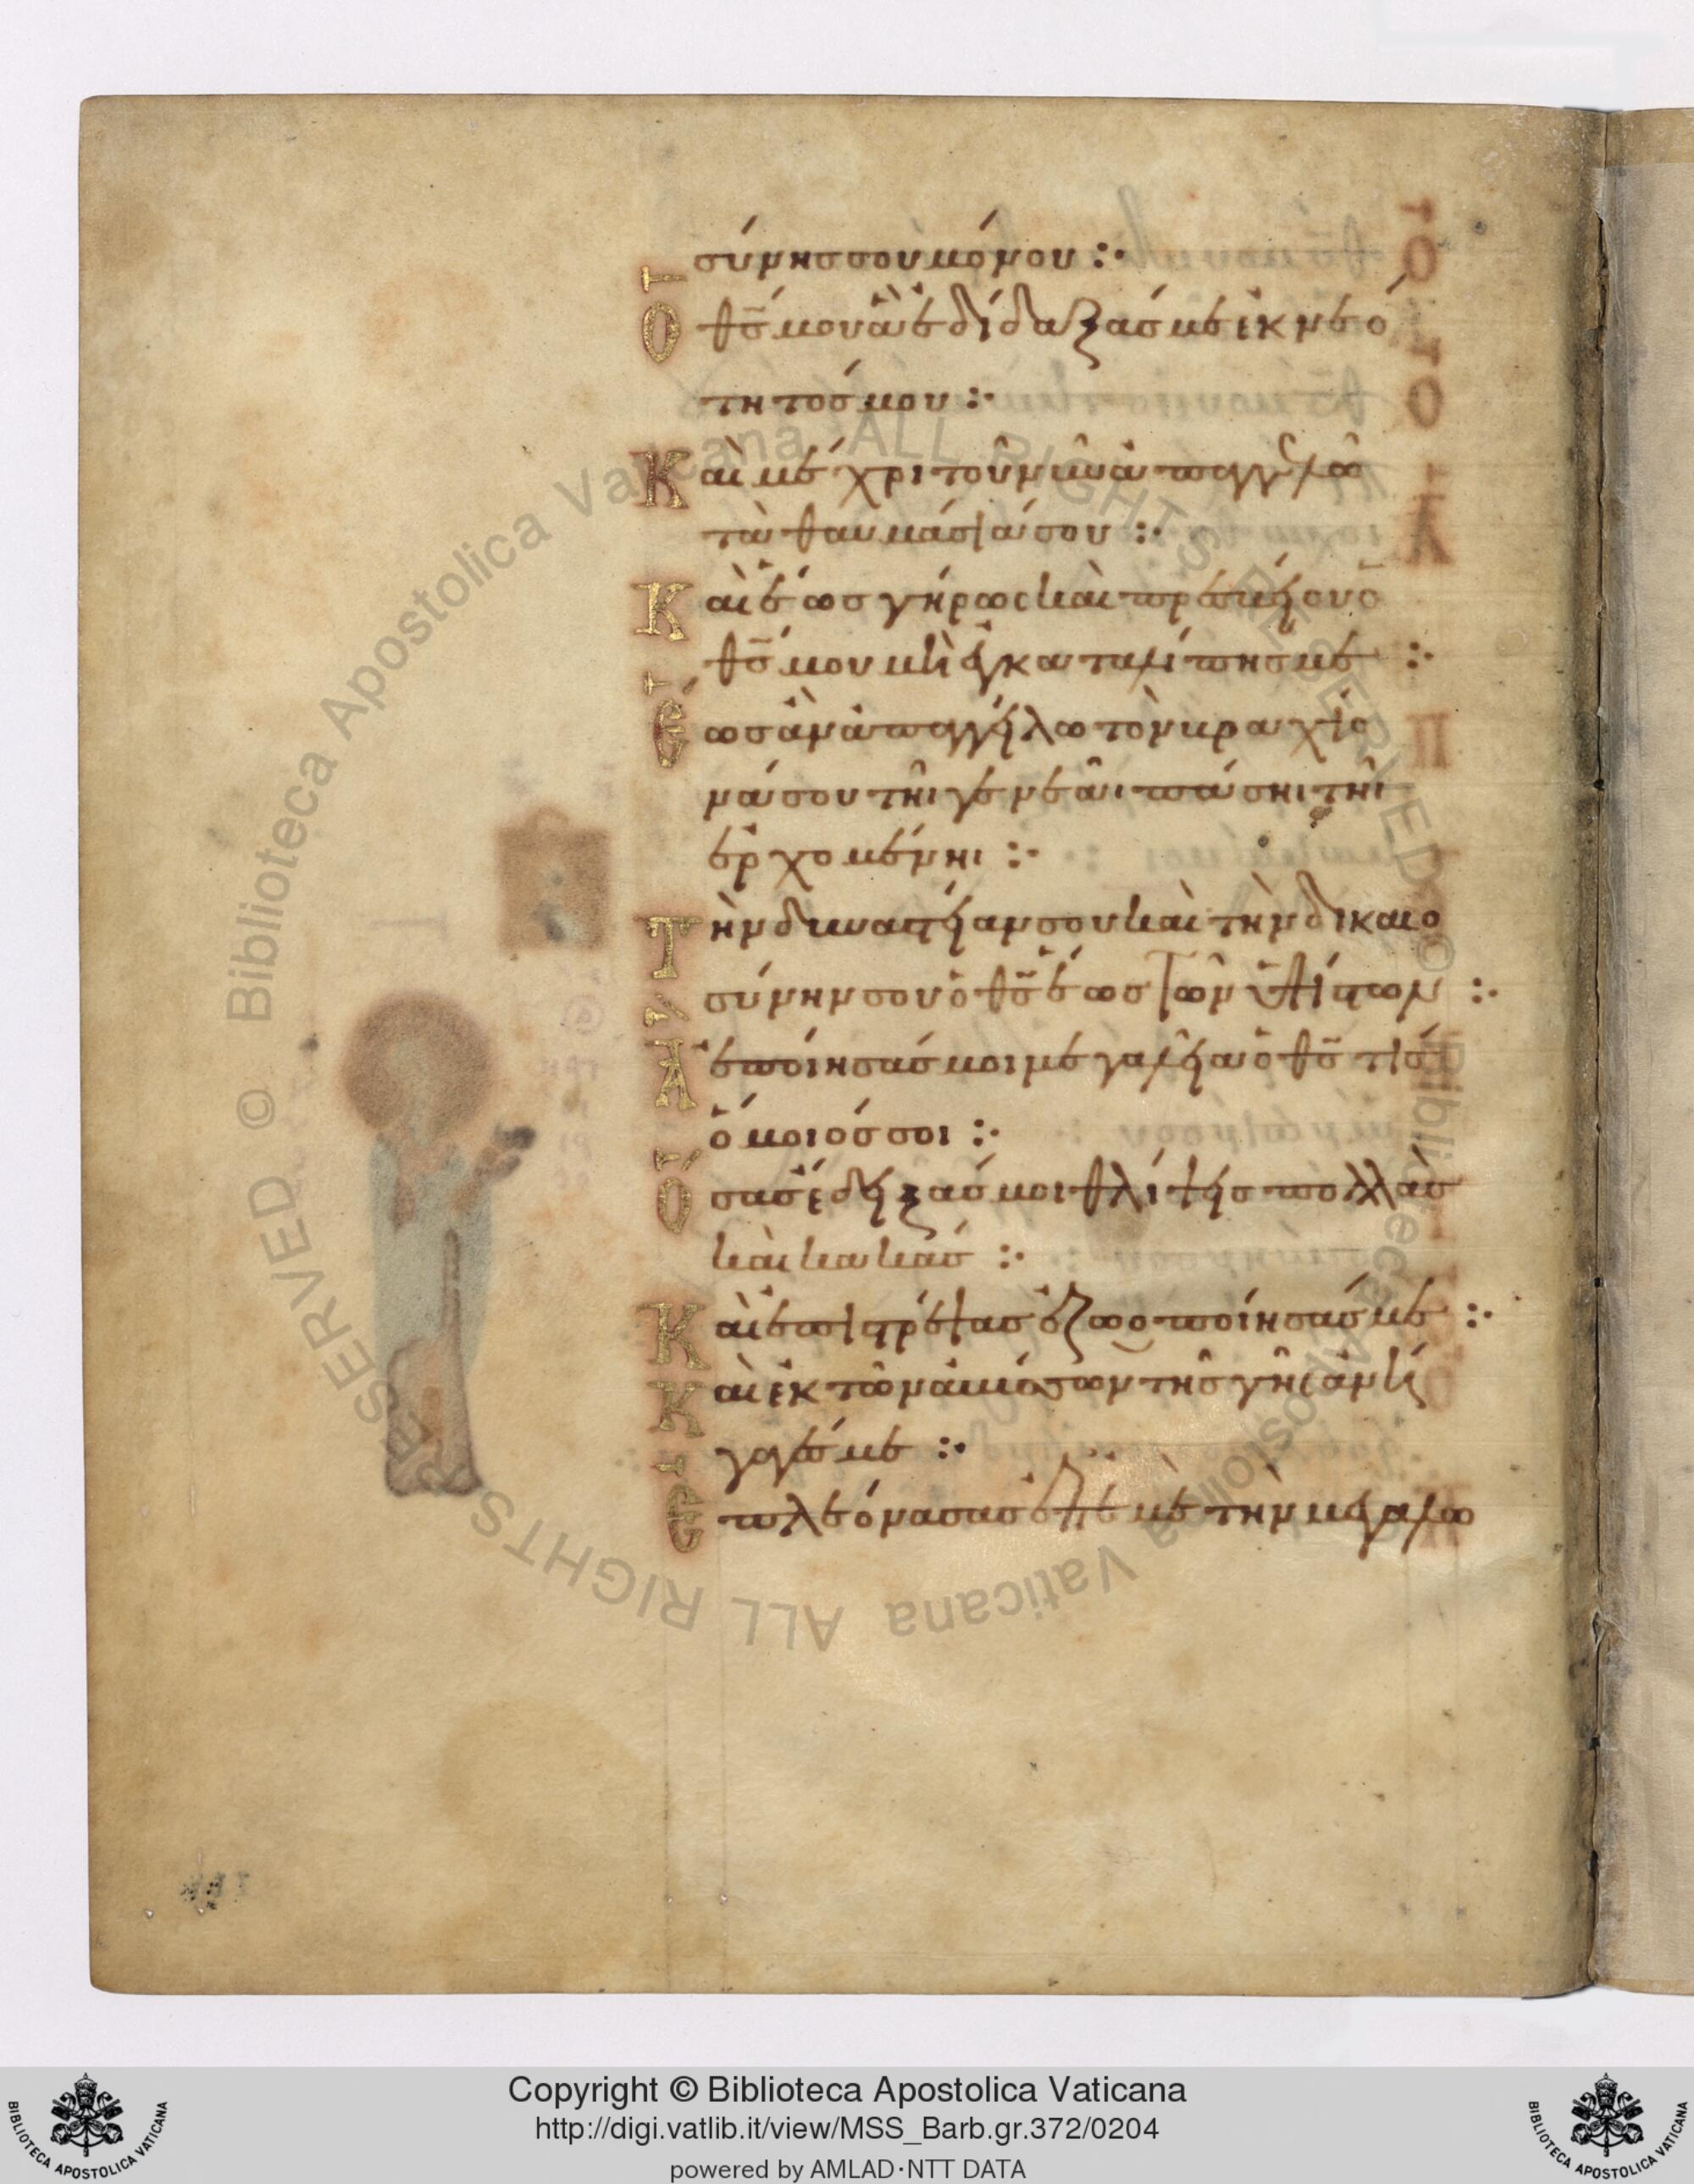 σύνησ σου μόνου :·
Ὁ θσ̄ μου ἃ ἐδίδαξάσ με ἐκ νεό
τητόσ μου :·
Καὶ μέχρι τοῦ νῦν ἀπαγγελῶ
τὰ θαυμάσιά σου :·
Καὶ ἕωσ γήρωσ καὶ πρεσβείου ὁ
θσ̄ μου μὴ ἐγκαταλίπησ με :·
Ἕωσ ἂν ἀπαγγείλω τὸν βραχίο
νά σου τῆι γενεᾶι πάσηι τῆι
ἐρχομένηι :·
Τὴν δυναστείαν σου καὶ τὴν δικαιο
σύνην σου ὁ θσ̄ ἕωσ τῶν ὑψίστων :·
Ἃ ἐποίησάσ μοι μεγαλεῖα ὁ θσ̄ τίσ
ὅμοιόσ σοι :·
Ὅσασ ἔδειξάσ μοι θλίψεισ πολλὰσ
καὶ κακάσ :·
Καὶ ἐπιστρέψασ ἐζωοποίησάσ με :·
Καὶ ἐκ τῶν ἀβύσσων τῆσ γῆσ ἀνή
γαγέσ με :·
Ἐπλεόνασασ ἐπ' ἐμὲ τὴν μεγαλω
Copyright © Biblioteca Apostolica Vaticana
http://digi.vatlib.it/view/MSS_Barb.gr.372/0204
powered by AMLAD·NTT DATA